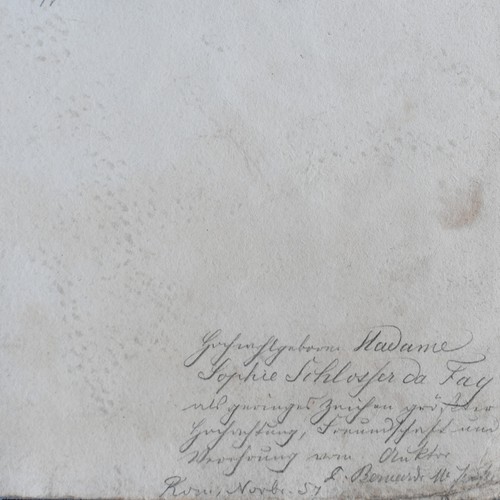 Hochwohlgeborne Madame
Sophie Schlosser da Fay
als geringes Zeichen größter
Hochachtung, Freundschaft und
Verehrung vom Auktor
P. Bernardo M.
Rom, Novbr. 57